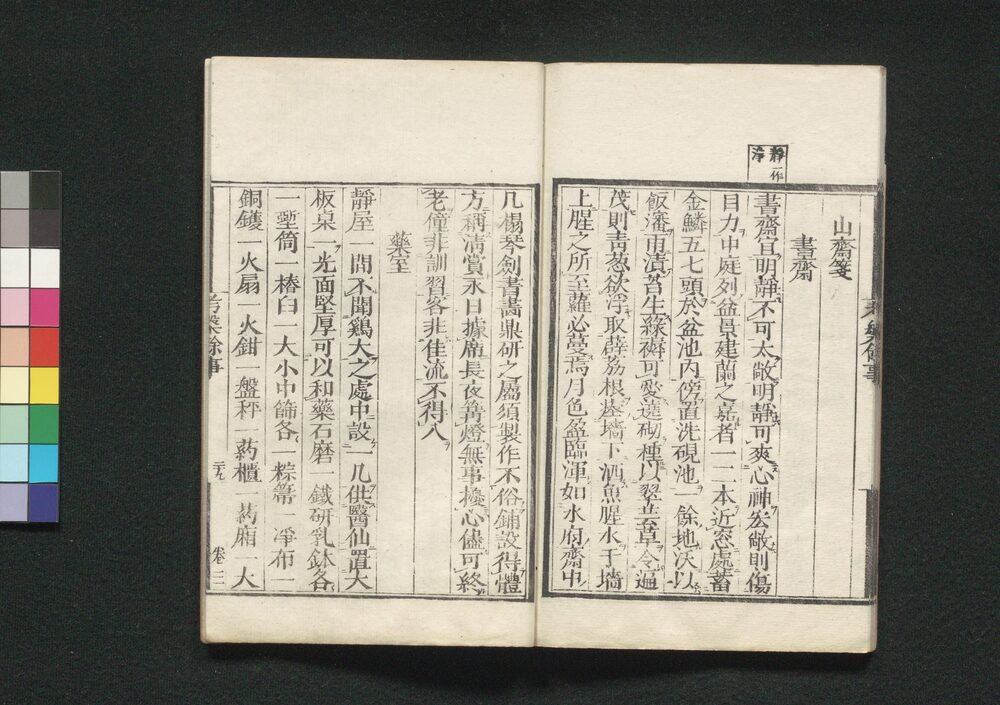 靜一作
淨
山齋箋
書齋
書齋宜明靜不可太敞明靜可爽心神宏敞則傷
目力中庭列盆景建蘭之嘉者一二本近窓處蓄
金鱗五七頭於盆池內傍置洗硯池一餘地沃以
飯瀋雨漬苔生綠褥可愛遶砌種以翠芸草令遍
茂則青葱欲浮取薜荔根瘞墻下洒魚腥水于墻
上腥之所至蘿必蔓焉月色盈臨渾如水府齋中
几榻琴劍書畵鼎研之屬須製作不俗鋪設得體
方稱淸賞永日據席長夜篝燈無事擾心儘可終
老僮非訓習客非佳流不得入
藥室
靜屋一間不聞鷄犬之處中設一几供醫仙置大
板桌一光面堅厚可以和藥石磨一鐵研乳鉢各
一塹筒一樁臼一大小中篩各一粽箒一凈布一
銅鑊一火扇一火鉗一盤秤一药櫃一药廂一大
考槃餘事
二十九
卷三